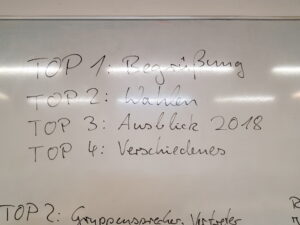 TOP 1: Begrüßung
TOP 2: Wahlen
TOP 3: Ausblick 2018
TOP 4: Verschiedenes
TOP 2: Gruppensprecher, Vertreter